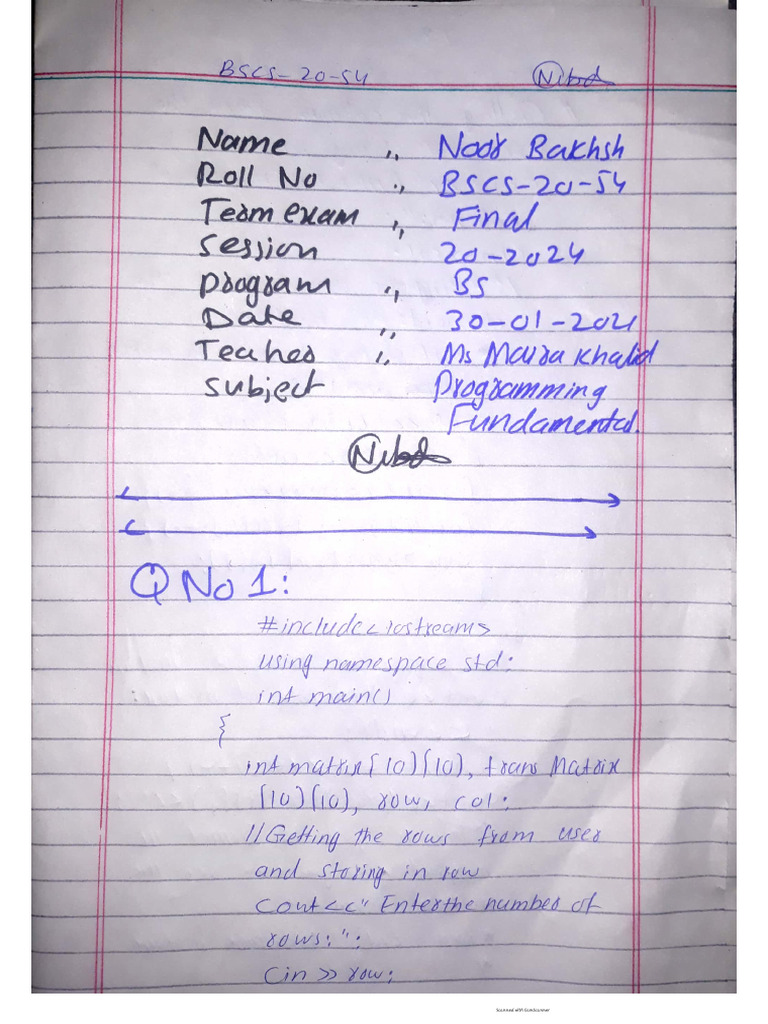 BSCS-20-54
Name ., Noor Bakhsh
Roll No ., BSCS-20-54
Term exam ., Final
Session 20-2024
Program ., BS
Date ., 30-01-2021
Teaher ., Ms Maira Khalid
Subject Programming
Fundamental.
Q No 1:
#include<iostream>
using namespace std;
int main()
{
int matrix[10][10], trans Matrix
[10][10], row, col;
//Getting the rows from user
and storing in row
Cout<<"Enter the number of
rows:";
Cin >> row;
Scanned with CamScanner